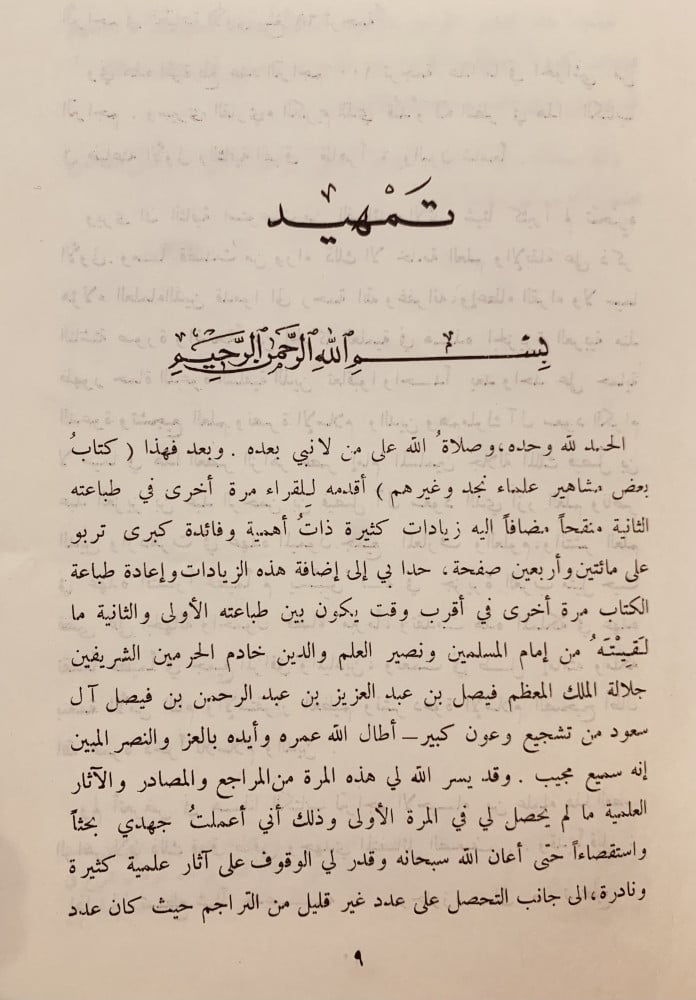 تمْهيد
بِسْمِ اللهِ الرَّحْمٰنِ الرَّحِيْمِ
الحمد لله وحده، وصلاةُ الله على من لا نبي بعده . وبعد فهذا ( كتابُ
بعض مشاهير علماء نجد وغيرهم ) أقدمه للقراء مرة أخرى في طباعته
الثانية منقحاً مضافاً اليه زيادات كثيرة ذاتُ أهمية وفائدة كبرى تربو
على مائتين وأربعين صفحة، حدا بي إلى إضافة هذه الزيادات وإعادة طباعة
الكتاب مرة أخرى في أقرب وقت يكون بين طباعته الأولى والثانية ما
لَقِيْتَهُ من إمام المسلمين ونصير العلم والدين خادم الحرمين الشريفين
جلالة الملك المعظم فيصل بن عبد العزيز بن عبد الرحمن بن فيصل آل
سعود من تشجيع وعون كبير – أطال الله عمره وأيده بالعز والنصر المبين
إنه سميع مجيب . وقد يسر الله لي هذه المرة من المراجع والمصادر والآثار
العلمية ما لم يحصل لي في المرة الأولى وذلك أني أعملتُ جهدي بحثاً
واستقصاءاً حتى أعان الله سبحانه وقدر لي الوقوف على آثار علمية كثيرة
ونادرة، الى جانب التحصل على عدد غير قليل من التراجم حيث كان عدد
٩